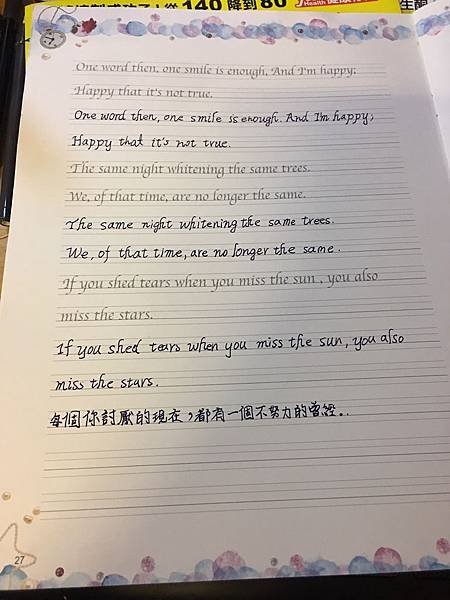 140降到80
Health
One word then, one smile is enough. And I'm happy;
Happy that it's not true.
One word then, one smile is enough. And I'm happy;
Happy that it's not true.
The same night whitening the same trees.
We, of that time, are no longer the same.
The same night whitening the same trees.
We, of that time, are no longer the same.
If you shed tears when you miss the sun , you also
miss the stars.
If you shed tears when you miss the sun, you also
miss the stars.
每個你討厭的現在，都有一個不努力的曾經。
27